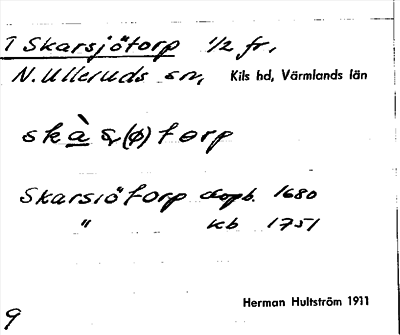 1 Skarsjötorp 1/2 fr,
N. Ulleruds sn, Kils hd, Värmlands län
Skarsiötorp dopb. 1680
" kb 1751
Herman Hultström 1911
9